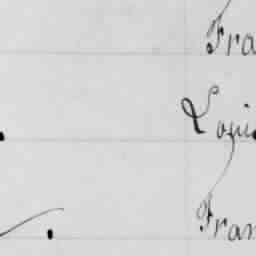 Fra
Loui
Fran